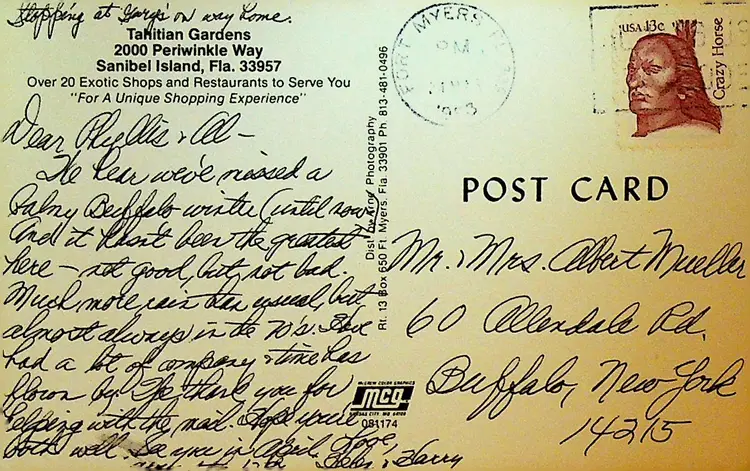 Stopping at Gary's on way home.
Tahitian Gardens
2000 Periwinkle Way
Sanibel Island, Fla. 33957
Over 20 Exotic Shops and Restaurants to Serve You
"For A Unique Shopping Experience"
Dear Phyllis & Al -
We hear we've missed a
balmy Buffalo winter (until now)
And it hasn't been the greatest
here - not good, but not bad.
Much more rain than usual, but
almost always in the 70's. Have
had a lot of company & time has
flown by. We thank you for
helping with the mail. Hope you're
both well. See you in April. Love,
& Harry
Dist by King Photography
Rt. 13 Box 650 Ft Myers, Fla. 33901 Ph 813-481-0496
McGREW COLOR GRAPHICS
mcg
KANSAS CITY, MO 64108
081174
FORT MYERS
PM
1983
USA 13c
Crazy Horse
POST CARD
Mr. & Mrs. Albert Mueller
60 Allendale Rd.
Buffalo, New York
14215